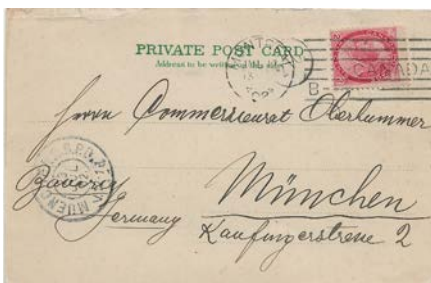 PRIVATE POST CARD
Address to be written on this side
MONTREAL
CANADA
B
Herrn Commerzienrat Oberhummer
München
Bavaria
Germany
Kaufingerstrasse 2
MUENCHEN